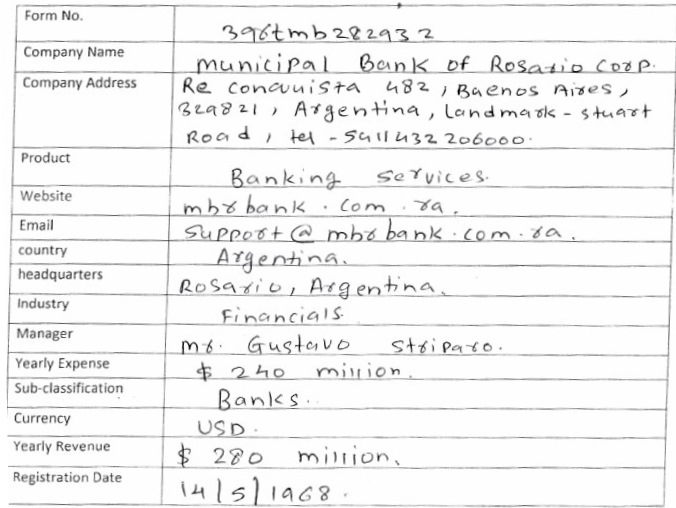 Form No.
396tmb282932
Company Name
municipal Bank of Rosario Corp.
Company Address
Re conquista 482, Baenos Aires,
329821, Argentina, Landmark - stuart
Road, tel - 5411432206000.
Product
Banking services.
Website
mbrbank.com.ra.
Email
support@mbrbank.com.ra.
country
Argentina.
headquarters
Rosario, Argentina.
Industry
Financials.
Manager
mr. Gustavo Striparo.
Yearly Expense
$ 240 million.
Sub-classification
Banks..
Currency
USD.
Yearly Revenue
$ 280 million.
Registration Date
14/5/1968.